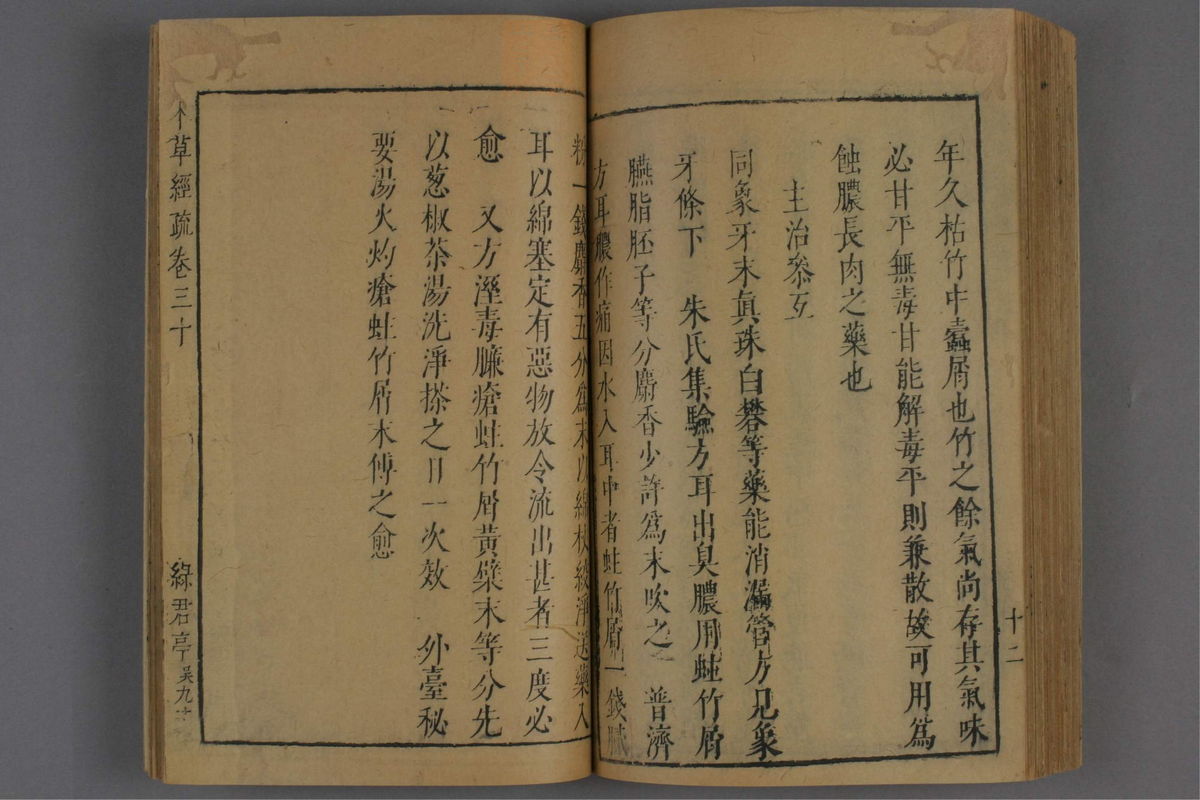 十二
年久枯竹中蠹屑也竹之餘氣尚存其氣味
必甘平無毒甘能解毒平則兼散故可用爲
蝕膿長肉之藥也
主治叅互
同象牙末眞珠白礬等藥能消漏管方見象
牙條下　朱氏集驗方耳出臭膿用蛀竹屑
臙脂胚子等分麝香少許爲末吹之　普濟
方耳膿作痛因水入耳中者蛀竹屑一錢膩
粉一錢麝香五分爲末以綿杖繳淨送藥入
耳以綿塞定有惡物放令流出甚者三度必
愈　又方溼毒臁瘡蛀竹屑黃檗末等分先
以葱椒茶湯洗淨搽之日一次效　外臺秘
要湯火灼瘡蛀竹屑末傅之愈
草經疏卷三十
綠君亭
吳九